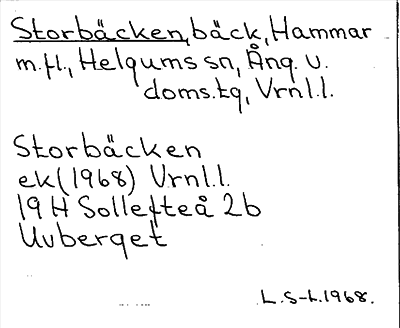 Storbäcken, bäck, Hammar
m.fl., Helgums sn, Ång. v.
doms.tg, Vrnl.l.
Storbäcken
ek (1968) Vrnl.l.
19 H Sollefteå 2b
Uvberget
L. S-L. 1968.